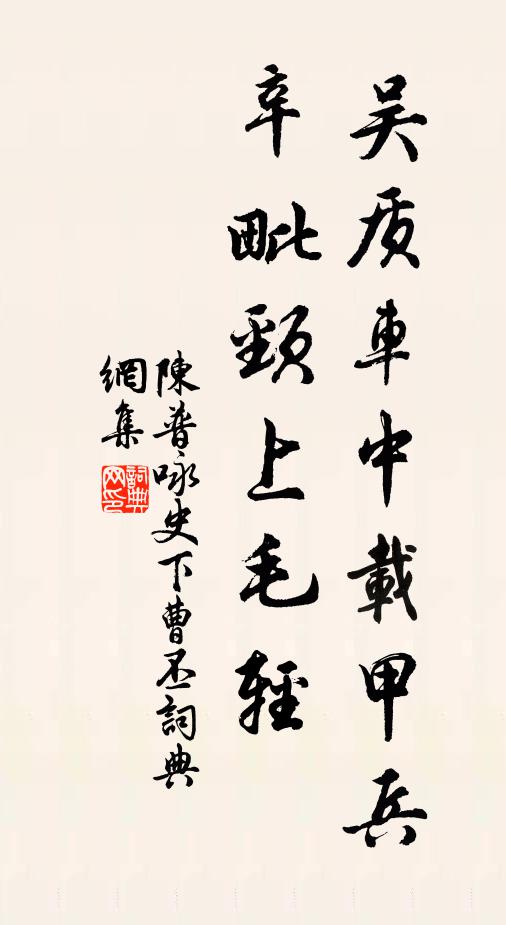 吴质車中載甲兵
辛毗頸上毛輕
陳普咏史下曹丕詞典
網集
詞典网印